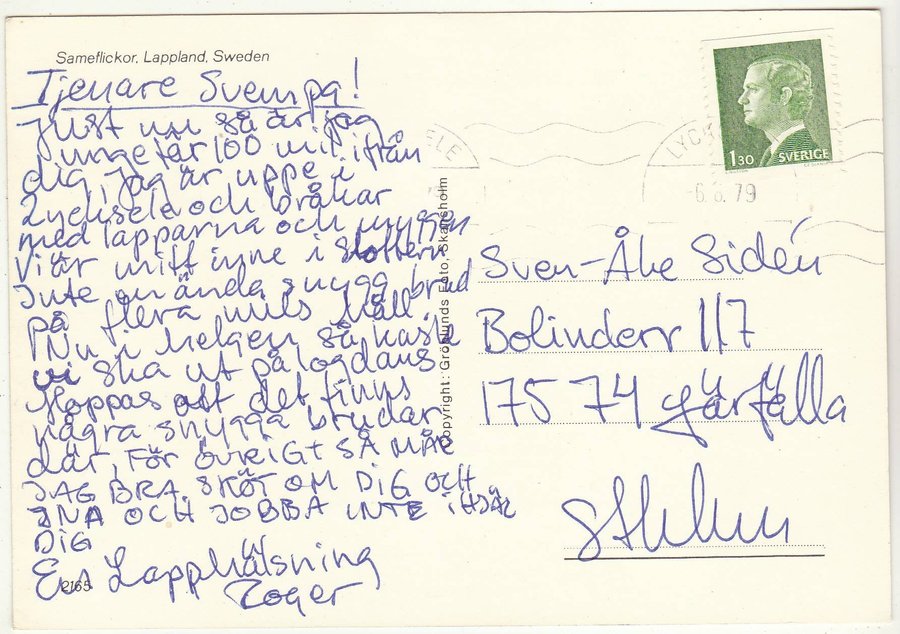 Sameflickor, Lappland, Sweden
Tjenare Svempa!
Just nu så är jag
ungefär 100 mil ifrån
dig, jag är uppe i
Lycksele och bråkar
med lapparna och myggen
Vi är mitt inne i
Inte en ända snygg brud
på flera mils håll.
Nu i helgen så kaske
vi ska ut på logdans
Hoppas att det finns
några snygga brudar
där, FÖR ÖVRIGT SÅ MÅR
JAG BRA. SKÖT OM DIG OCH
INA OCH JOBBA INTE IHJÄL
DIG
En Lapphälsning
Roger
2165
Copyright: Grönlunds Foto, Skansholm
ELE
LYC
-6.8.79
1.30 SVERIGE
Sven-Åke Sidén
Bolinderv 117
175 74 Järfälla
Sthlm